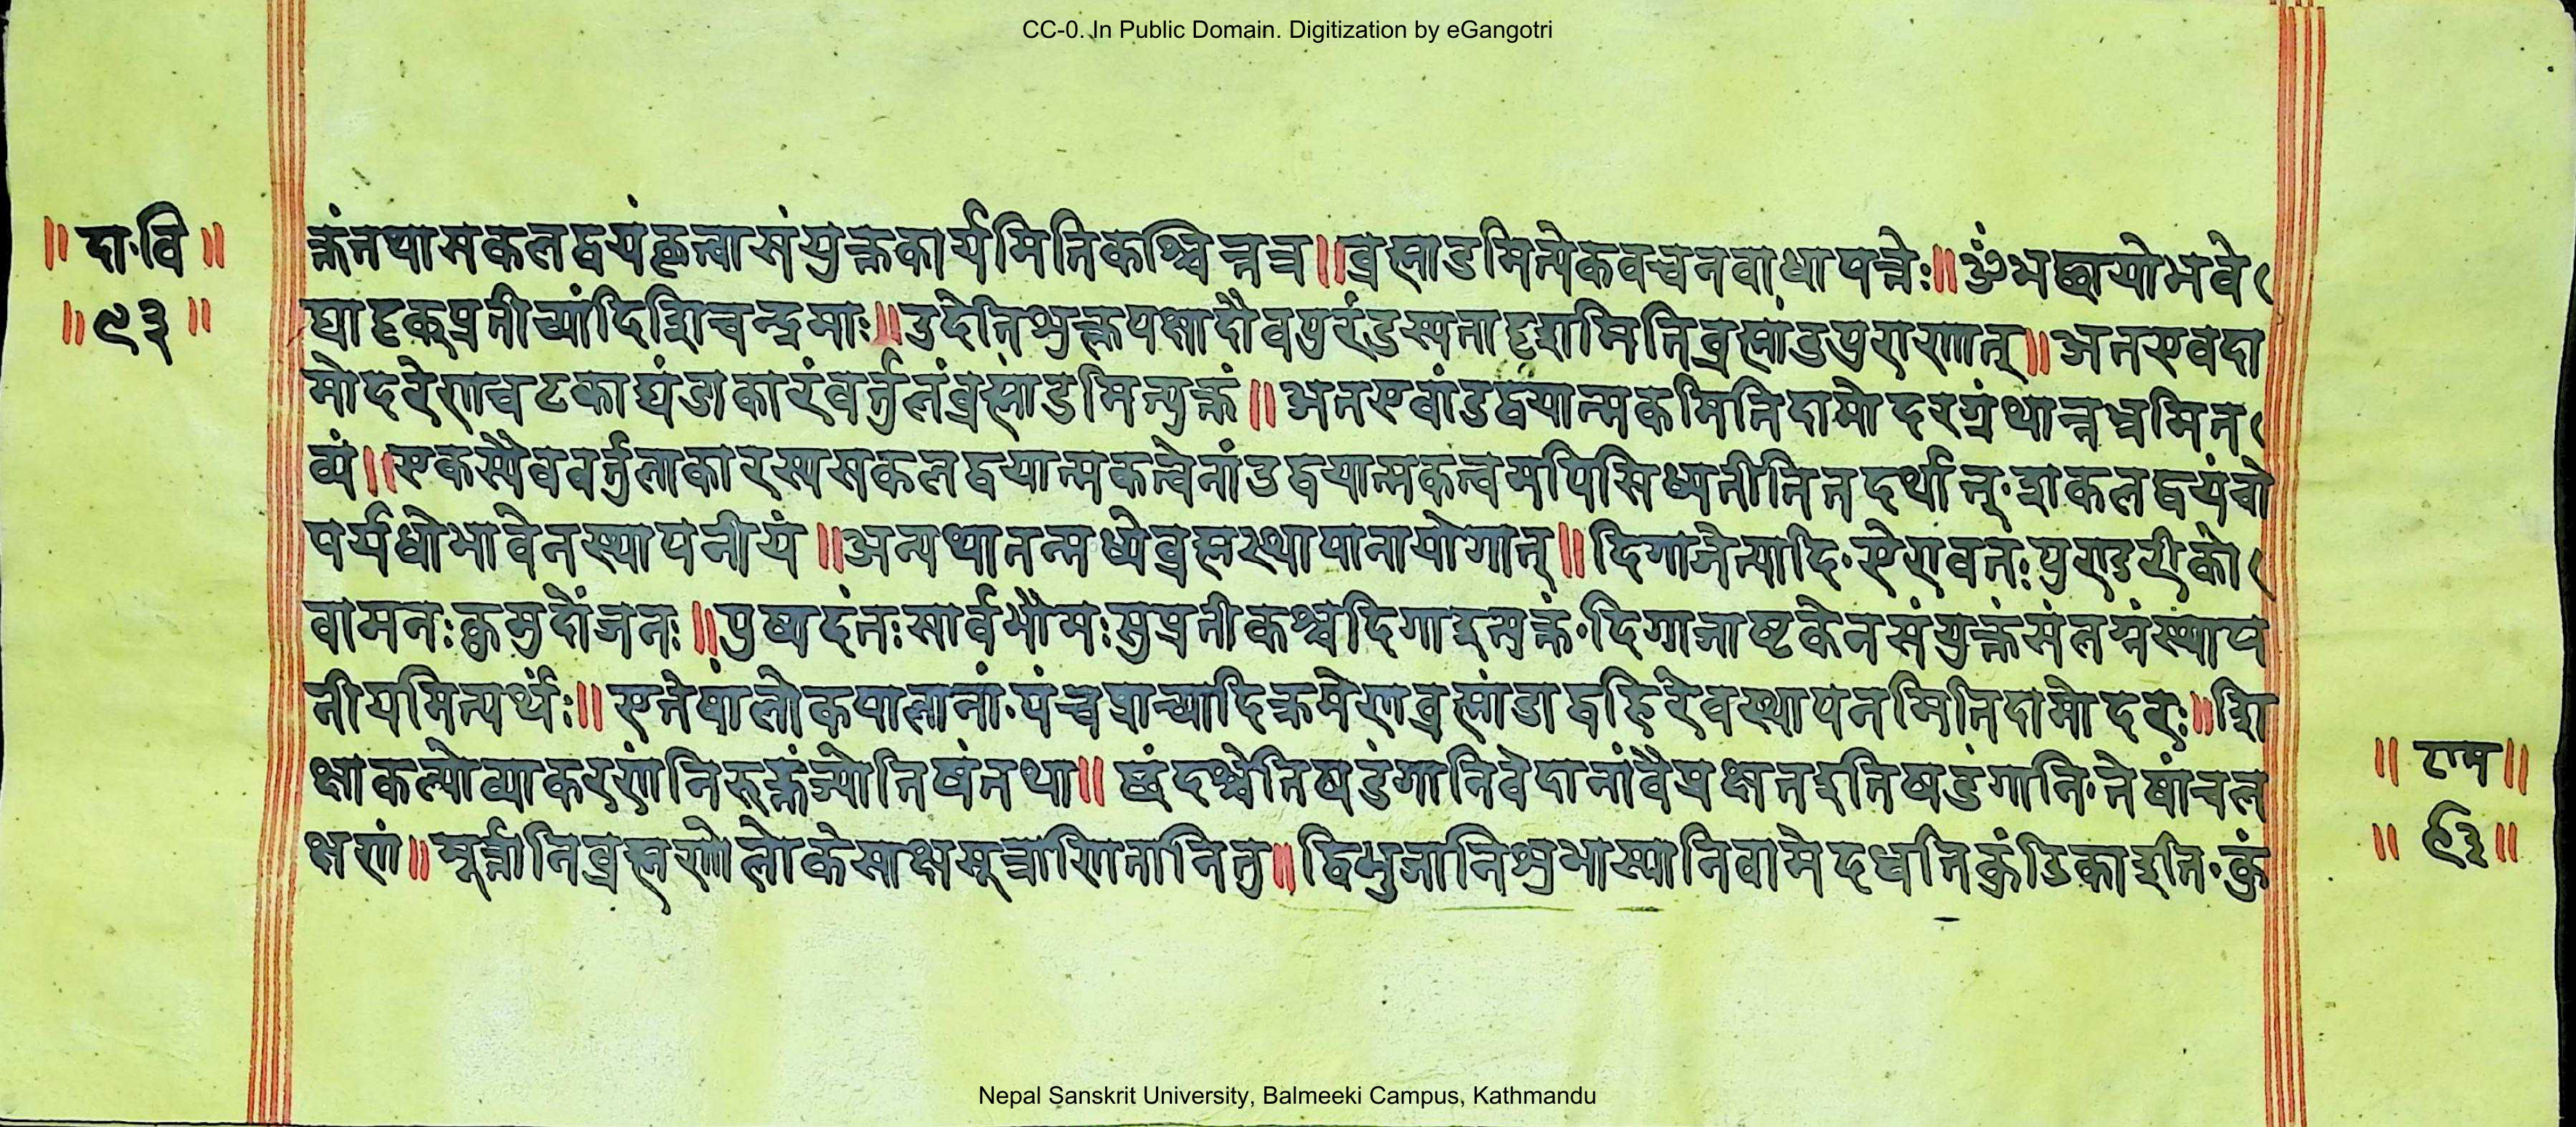 CC-0. In Public Domain. Digitization by eGangotri
॥ दा·वि ॥
॥ ९३ ॥
क्तंतथासकलद्वयंकृत्वासंयुक्तकार्यमितिकश्चित्तन्न॥ब्रह्मांडमित्येकवचनवाधापत्तेः॥ॐभच्छायोभवे
द्यादृक्प्रतीच्यांदिशिचन्द्रमाः॥उदेतिशुक्लपक्षादौवपुरंडस्यतादृशमितिब्रह्मांडपुराणात्॥अतएवदा
मोदरेणचटकाद्यंडाकारंवर्तुलंब्रह्मांडमित्युक्तं॥अतएवांडद्वयात्मकमितिदामोदरग्रंथान्नभ्रमित
व्यं॥एकस्यैववर्तुलाकारस्यसकलद्वयात्मकत्वेनांडद्वयात्मकत्वमपिसिध्यतीतितदर्थात्·शकलद्वयंचो
पर्यधोभावेनस्थापनीयं॥अन्यथातन्मध्येब्रह्मस्थापानायोगात्॥दिगाजेत्यादि·ऐरावतः पुण्डरीको
वामनः कुमुदोंजनः॥पुष्पदंतः सार्वभौमः सुप्रतीकश्चदिगाइत्युक्तं·दिग्गजाष्टकेनसंयुक्तंसंलग्नंस्थाप
नीयमित्यर्थः॥एतेषांलोकपालानां·पंच्चप्राच्यादिक्रमेणब्रह्मांडाद्वहिरेवस्थापनमितिदामोदरः॥शि
क्षाकल्पोव्याकरणंनिरुक्तंज्योतिषंतथा॥छंदश्चेतिषडंगानिवेदानांवैप्रक्षतइतिषडंगानि·तेषांचल
क्षणं॥मूर्त्तानिब्रह्मणोलोकेसाक्षसूत्राणितानितु॥द्विभुजानिशुभास्यानिवामेदधतिकुंडिकाइति·कुं
॥ राम ॥
॥ ९३ ॥
Nepal Sanskrit University, Balmeeki Campus, Kathmandu